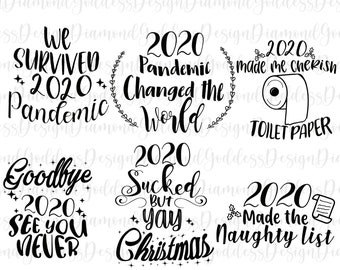 WE
SURVIVED
2020
Pandemic
2020
Pandemic
Changed the
World
2020
made me cherish
TOILET PAPER
Goodbye
2020
SEE YOU
NEVER
2020
Sucked
BUT
YAY
Christmas
2020
Made the
Naughty list